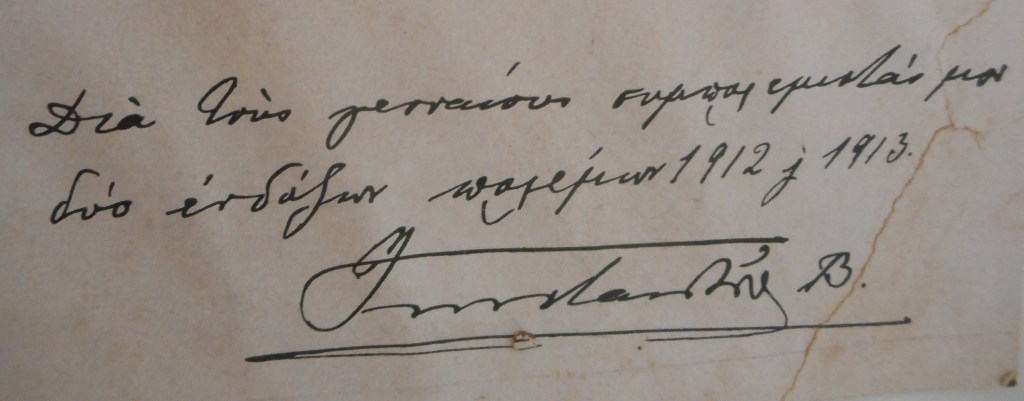 Διὰ τοὺς γενναίους συμπολεμιστάς μου
δύο ἐνδόξων πολέμων 1912 & 1913.
Κωνσταντῖνος Β.